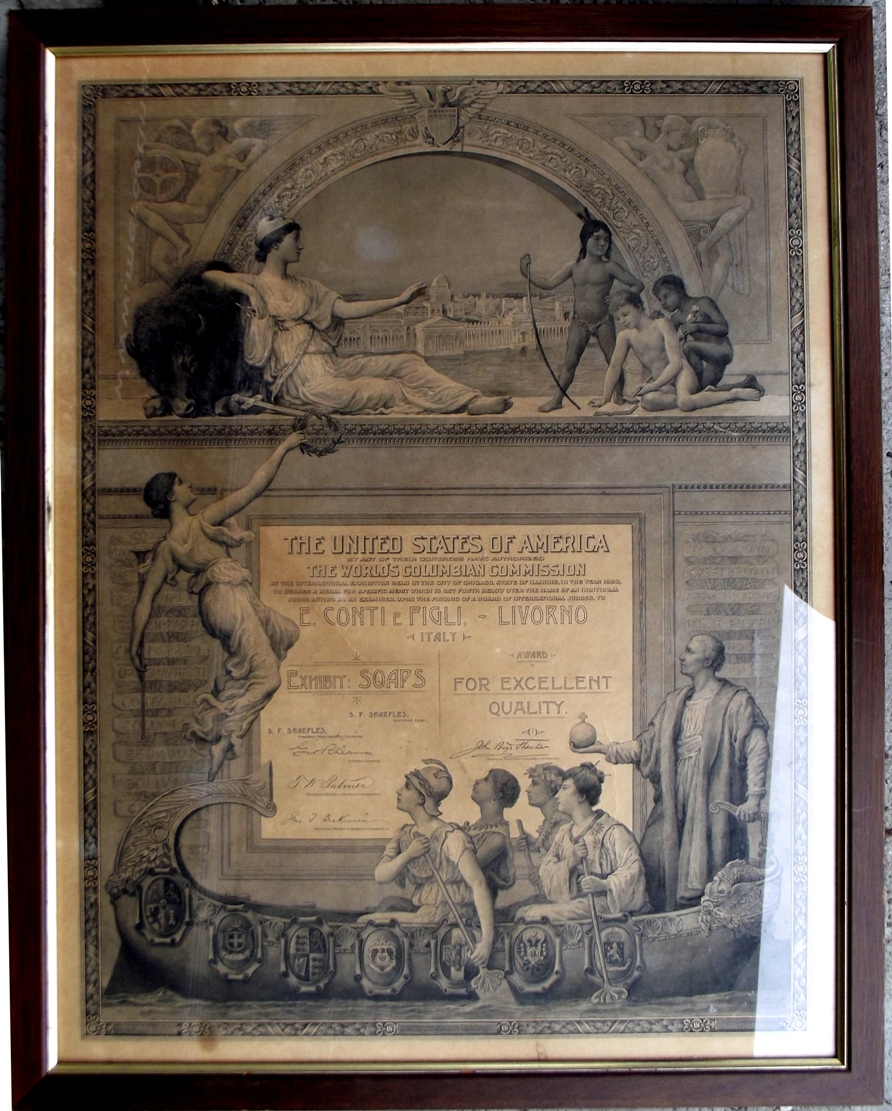 THE UNITED STATES OF AMERICA
BY ACT OF THEIR CONGRESS HAVE AUTHORIZED
THE WORLD'S COLUMBIAN COMMISSION
AT THE INTERNATIONAL EXHIBITION HELD IN THE CITY OF CHICAGO, STATE OF ILLINOIS, IN THE YEAR 1893,
TO DECREE A MEDAL FOR SPECIFIC MERIT WHICH IS SET FORTH BELOW OVER THE NAME OF AN INDIVIDUAL
JUDGE ACTING AS AN EXAMINER, UPON THE FINDING OF A BOARD OF INTERNATIONAL JUDGES, TO
E. CONTI E FIGLI, - LIVORNO
ITALY
EXHIBIT: SOAPS
S. P. SHARPLES,
S. P. SHARPLES,
AWARD
FOR EXCELLENT
QUALITY.
John Boyd Thacher